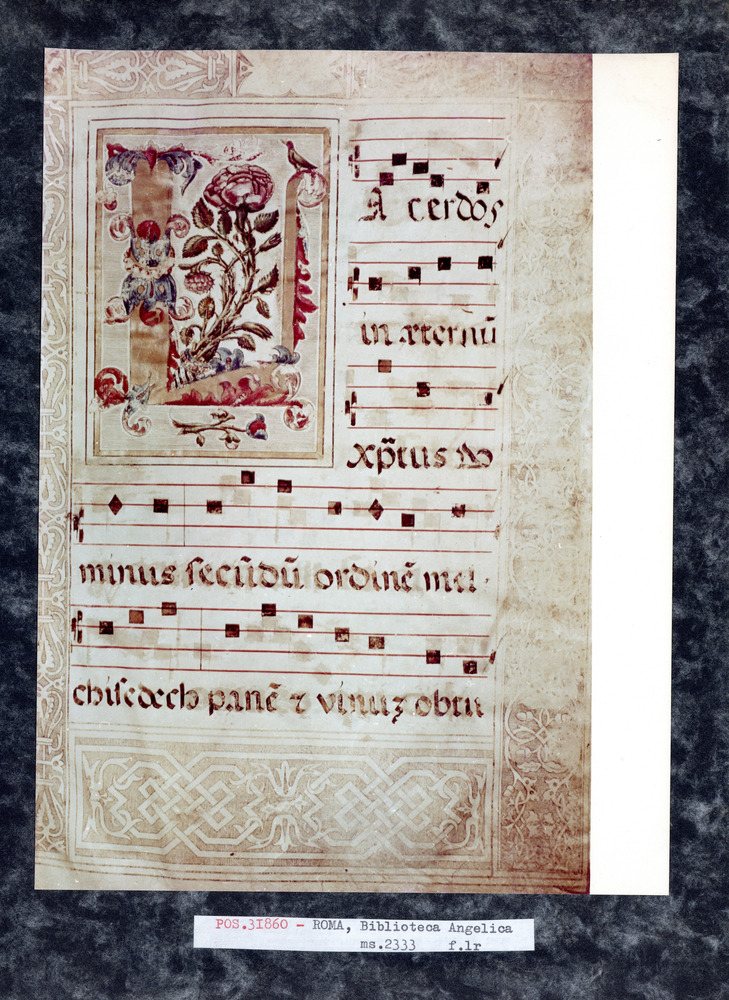 A cerdos
in æternũ
xp̃tus do
minus secũdũ ordinẽ mel-
chisedech panẽ ⁊ vinuȝ obtu
POS.31860 - ROMA, Biblioteca Angelica
ms.2333 f.1r